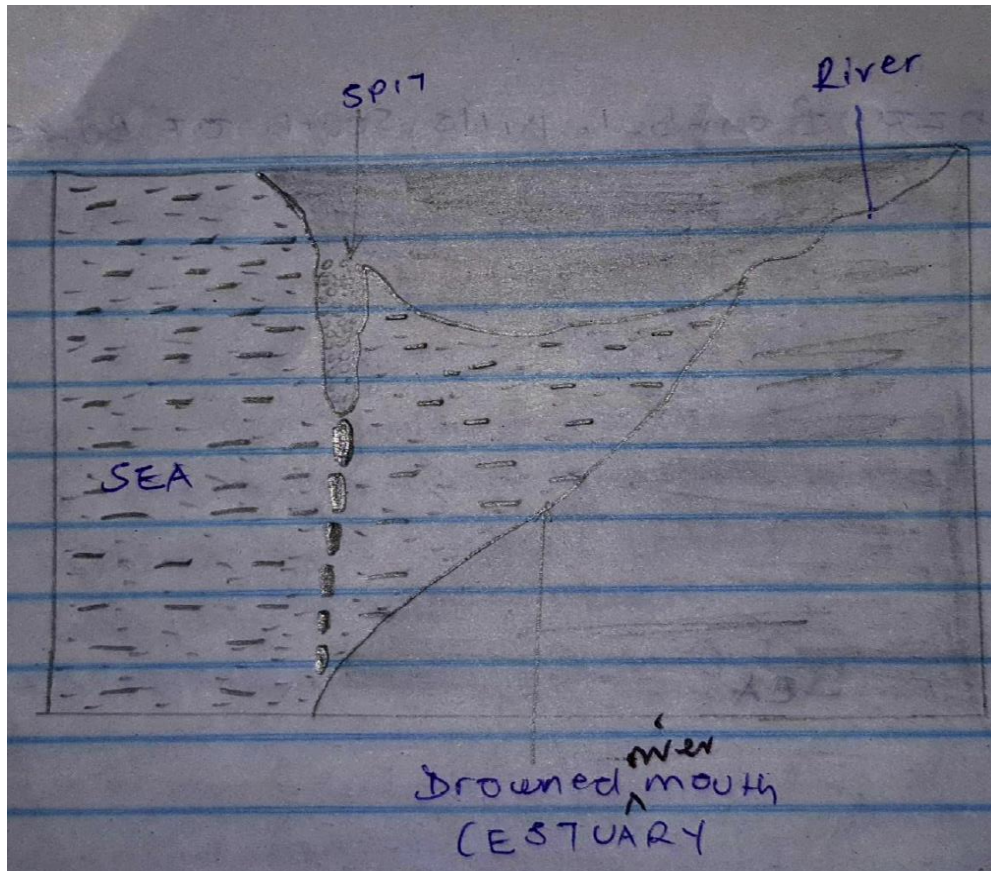 SPIT
River
SEA
Drowned river mouth
(ESTUARY